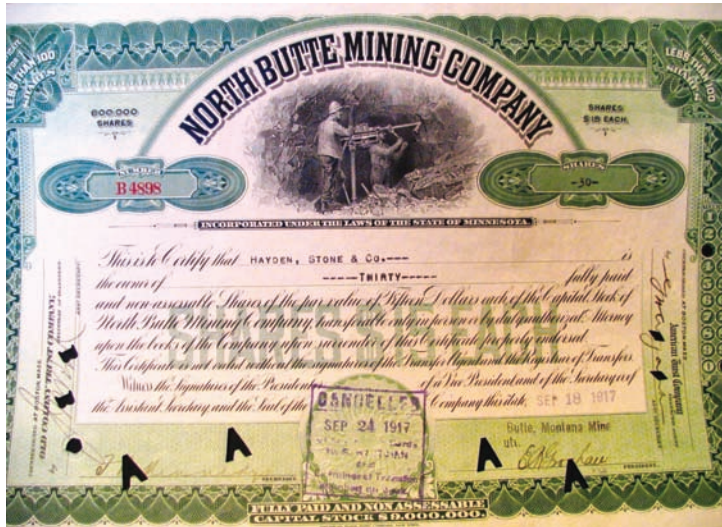 LESS THAN 100
SHARES
LESS THAN 100
SHARES
NORTH BUTTE MINING COMPANY
600,000
SHARES
SHARES
$15 EACH.
NUMBER
B 4898
SHARES
-30-
INCORPORATED UNDER THE LAWS OF THE STATE OF MINNESOTA.
This is to Certify that HAYDEN, STONE & Co.--- is
the owner of -----THIRTY----- fully paid
and non-assessable Shares of the par value of Fifteen Dollars each of the Capital Stock of
North Butte Mining Company, transferable only in person or by duly authorized Attorney
upon the books of the Company upon surrender of this Certificate properly endorsed.
This Certificate is not valid without the signature of the Transfer Agent and the Registrar of Transfers.
Witness the Signatures of the President or of a Vice President and of the Secretary or of
the Assistant Secretary and the Seal of the Company this date, SEP 18 1917
SHARES $15 EACH
CANCELLED
SEP 24 1917
Butte, Montana Mine
SECRETARY
PRESIDENT.
OLD COLONY TRUST COMPANY,
FULLY PAID AND NON ASSESSABLE
CAPITAL STOCK $9,000,000.